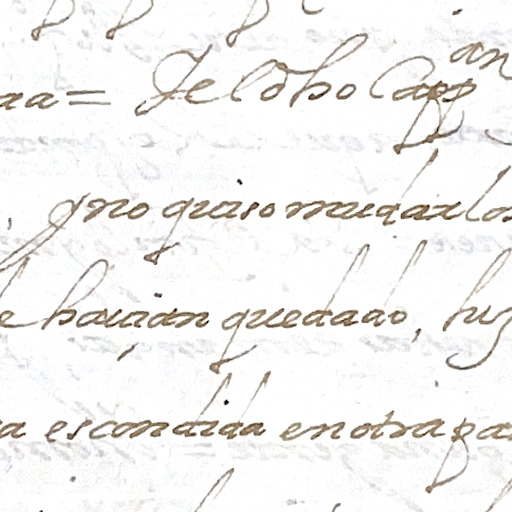 aa = Yel dho Cappan
yno quiso mudarlos
e hauian quedado, hiz
a escondida en otra pa